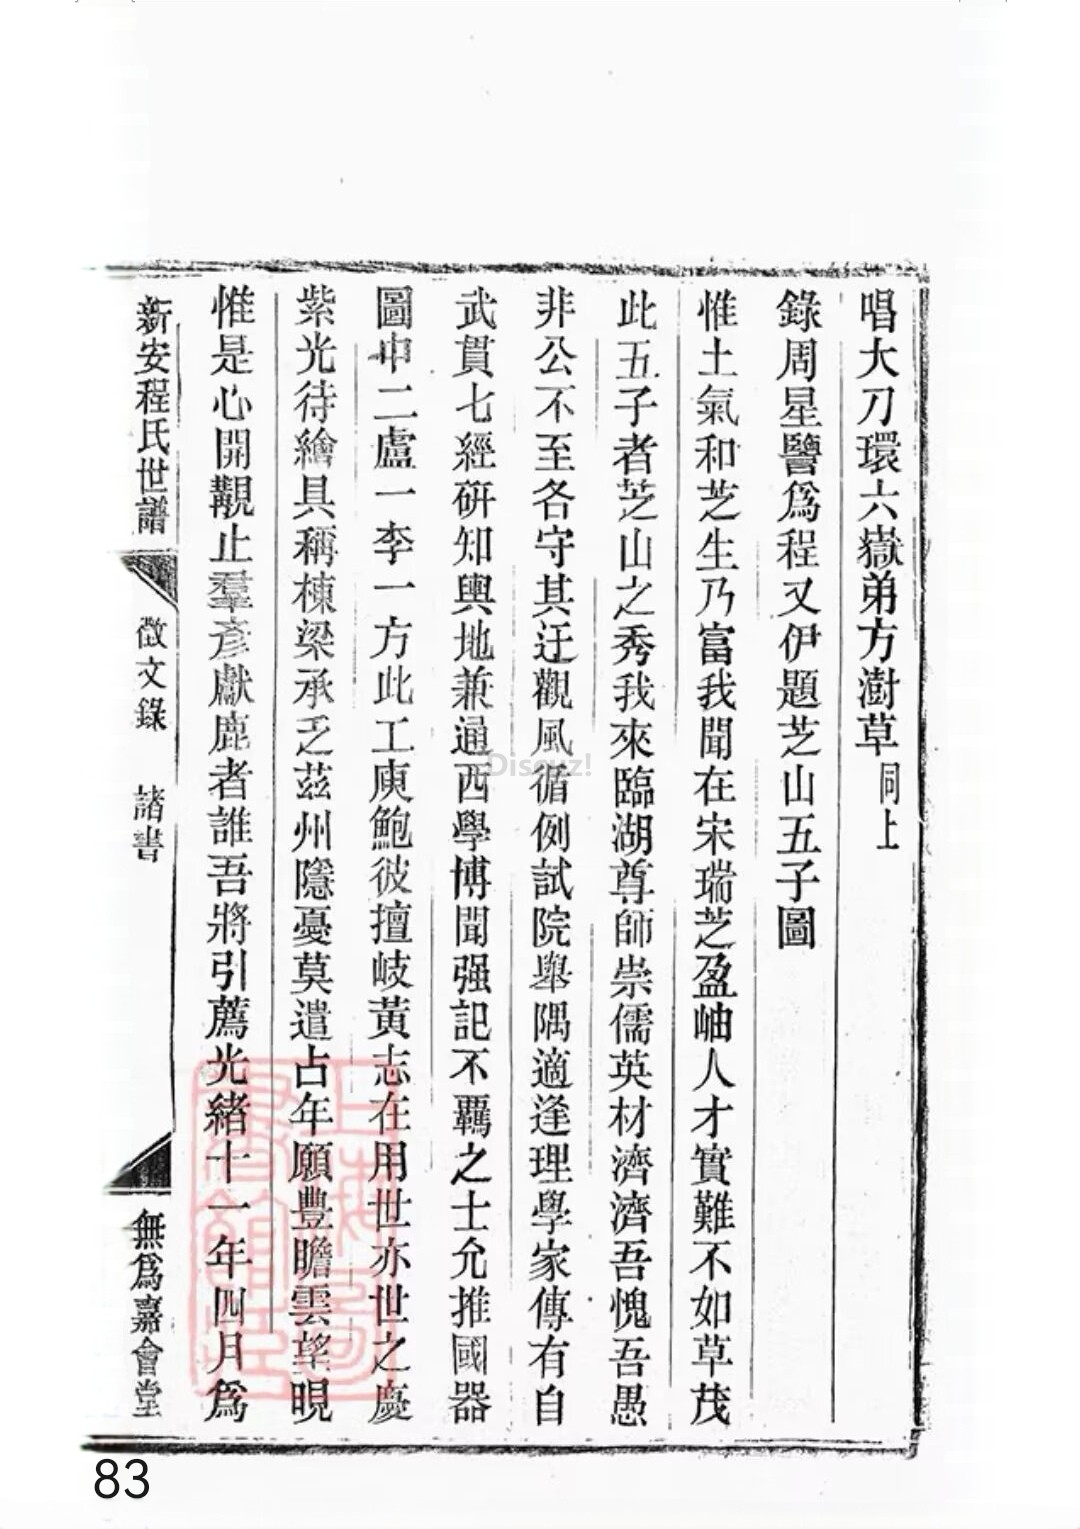 唱大刀環六嶽弟方澍草同上
錄周星譼為程又伊題芝山五子圖
惟土氣和芝生乃富我聞在宋瑞芝盈岫人才實難不如草茂
此五子者芝山之秀我來臨湖尊師崇儒英材濟濟吾愧吾愚
非公不至各守其迂觀風循例試院舉隅適逢理學家傳有自
武貫七經研知輿地兼通西學博聞强記不羈之士允推國器
圖中二盧一李一方此工庾鮑彼擅岐黃志在用世亦世之慶
紫光待繪具稱棟梁承乏茲州隱憂莫遣占年願豐瞻雲望晛
惟是心開覯止羣彥獻鹿者誰吾將引薦光緒十一年四月為
新安程氏世譜
徵文錄 諸書
無為嘉會堂
上海圖書館藏
Discuz!
83